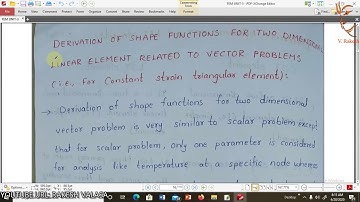 FEM UNIT-3 - PDF-XChange Editor
V. Rakesh
DERIVATION OF SHAPE FUNCTIONS FOR TWO DIMENSIONAL
LINEAR ELEMENT RELATED TO VECTOR PROBLEMS
(i.e., for Constant strain triangular element):
→ Derivation of shape functions for two dimensional
vector problem is very similar to scalar problem except
that for scalar problem, only one parameter is considered
for analysis like temperature at a specific node whereas
YOUTUBE URL: RAKESH VALASA